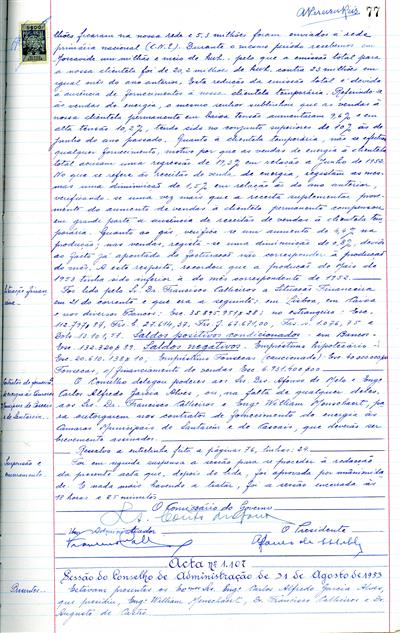 77
lhões ficaram na nossa rede e 5,3 milhões foram enviados à rede
primária nacional (C.N.E.). Durante o mesmo período recebemos em
um milhão e meio de kwh. pelo que a emissão total para
a nossa clientela foi de 20,2 milhões de kwh. contra 23 milhões em
igual mês do ano anterior. Esta redução da emissão total é devida
à ausência de fornecimentos à nossa clientela temporária. Referindo-se
às vendas de energia, o mesmo senhor sublinhou que as vendas à
nossa clientela permanente em baixa tensão aumentaram 9,6% e em
alta tensão 10,2%, tendo sido no conjunto superiores de 10% às de
junho do ano passado. Quanto à clientela temporária, não se efectuou
qualquer fornecimento, motivo por que as vendas de energia à clientela
total acusam uma regressão de 17,3% em relação a Junho de 1952.
No que se refere às receitas de venda de energia, registam as mes-
mas uma diminuição de 1,5% em relação às do ano anterior,
verificando-se uma vez mais que a receita suplementar prove-
niente do aumento de vendas à clientela permanente compensou
em grande parte a ausência de receitas de vendas à clientela tem-
porária. Quanto ao gás, verifica-se um aumento de 4,4% na
produção; nas vendas, regista-se uma diminuição de 0,8%, devido
ao facto já apontado da facturação não corresponder à produção
do mês. A este respeito, recordou que a produção de Maio de
1953 tinha sido inferior à do mês correspondente de 1952.
Situação finan-
ceira
Foi lida pelo Sr. Dr. Francisco Calheiros a Situação Financeira
em 21 do corrente e que era a seguinte: em Lisboa, em Caixa
e nos diversos Bancos: Esc. no estrangeiro: Esc.
Saldos positivos condicionados: em Bancos-
Saldos negativos: Empréstimo hipotecário-
Empréstimo Fonsecas (caucionado): Esc.
Fonsecas, c/ financiamento de vendas Esc.
O Conselho delegou poderes aos Srs. Drs. Afonso de Melo e Engº
Carlos Alfredo Garcia Alves, ou, na falta de qualquer deles,
aos Srs. Dr. Francisco Calheiros e Engº William Monschaert, pa-
ra outorgarem nos contratos de fornecimento de energia às
Câmaras Municipais de Santarém e do Cascais, que deverão ser
brevemente assinados.
Ressalva a entrelinha feita a página 76, linhas: 24.
Suspensão e
encerramento
Foi em seguida suspensa a sessão para se proceder à redacção
da presente acta que, depois de lida, foi aprovada por unanimidade.
E nada mais havendo a tratar, foi a sessão encerrada às
18 horas e 25 minutos.
O Comissário do Governo
Um Administrador
O Presidente
Acta nº 1.107
Sessão do Conselho de Administração de 21 de Agosto de 1953
Presentes
Estavam presentes os Exmos Srs. Engº Carlos Alfredo Garcia Alves,
que presidiu, Engº William Monschaert, Dr. Francisco Calheiros e Dr.
Augusto de Castro.